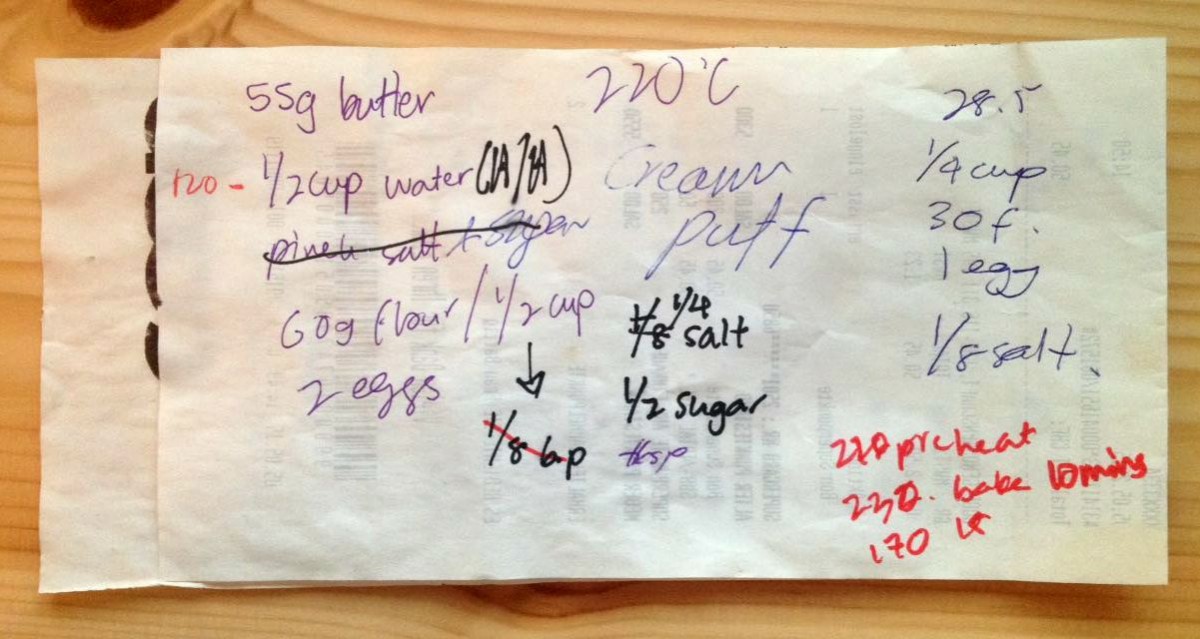 55g butter
120 - 1/2 cup water
pinch salt + sugar
60g flour / 1/2 cup
2 eggs
1/8 b.p
220°C
Cream
puff
1/8 1/4 salt
1/2 sugar
tbsp
28.5
1/4 cup
30 f.
1 egg
1/8 salt.
220 preheat
230. bake 10 mins
170